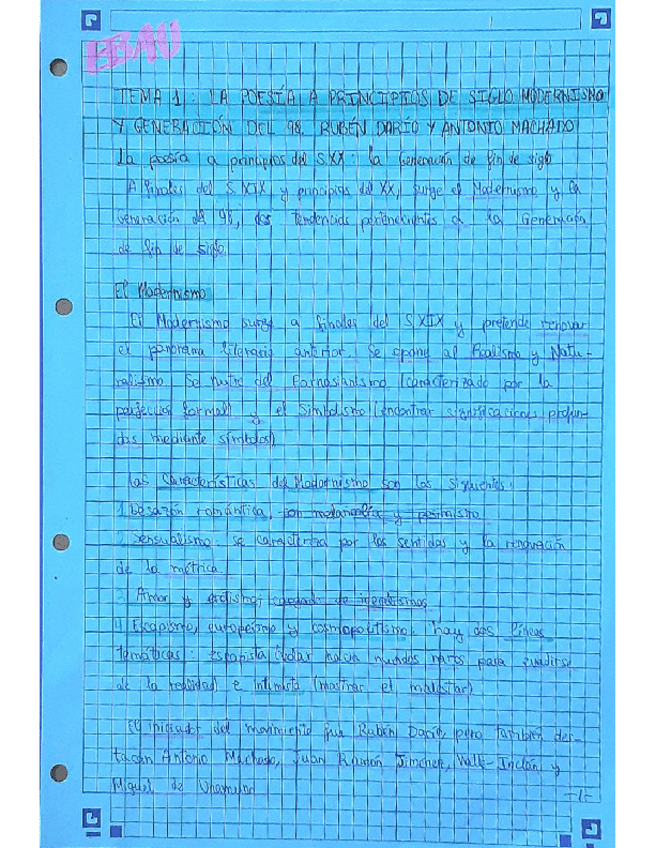 EBAU
TEMA 1: LA POESÍA A PRINCIPIOS DE SIGLO MODERNISMO
Y GENERACIÓN DEL 98. RUBÉN DARÍO Y ANTONIO MACHADO
La poesía a principios del S.XX: la Generación de fin de siglo
A finales del S.XIX y principios del XX, surge el Modernismo y la
Generación del 98, dos tendencias pertenecientes a la Generación
de fin de siglo.
El Modernismo
El Modernismo surge a finales del S.XIX y pretende renovar
el panorama literario anterior. Se opone al Realismo y Natu-
ralismo. Se nutre del Parnasianismo (caracterizado por la
perfección formal) y el Simbolismo (encontrar significaciones profun-
das mediante símbolos)
Las características del Modernismo son las siguientes:
1. Desazón romántica, con melancolía y pesimismo
2. Sensualismo: se caracteriza por los sentidos y la renovación
de la métrica.
3. Amor y erotismo, cargado de
4. Escapismo, europeísmo y cosmopolitismo: hay dos líneas
temáticas: escapista (viajar hacia mundos raros para evadirse
de la realidad) e intimista (mostrar el malestar)
El iniciador del movimiento fue Rubén Darío, pero también des-
tacan Antonio Machado, Juan Ramón Jiménez, Valle-Inclán y
Miguel de Unamuno
-1-